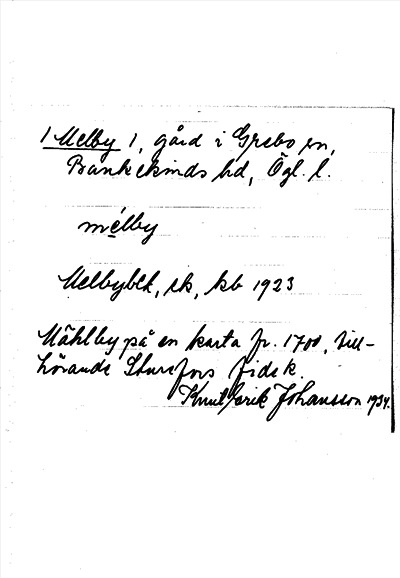 1 Melby 1, gård i Grebo sn,
Bankekinds hd, Ögl. l.
mélby
Melbybck, sk, kb 1923
Mählby på en karta fr. 1700, till-
hörande Sturefors fidek.
Knut Erik Johansson 1934.